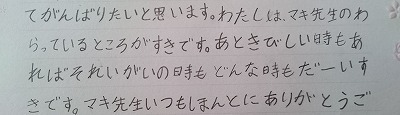 てがんばりたいと思います。わたしは、マキ先生のわ
らっているところがすきです。あときびしい時もあ
ればそれいがいの時もどんな時もだーいす
きです。マキ先生いつもほんとにありがとうご